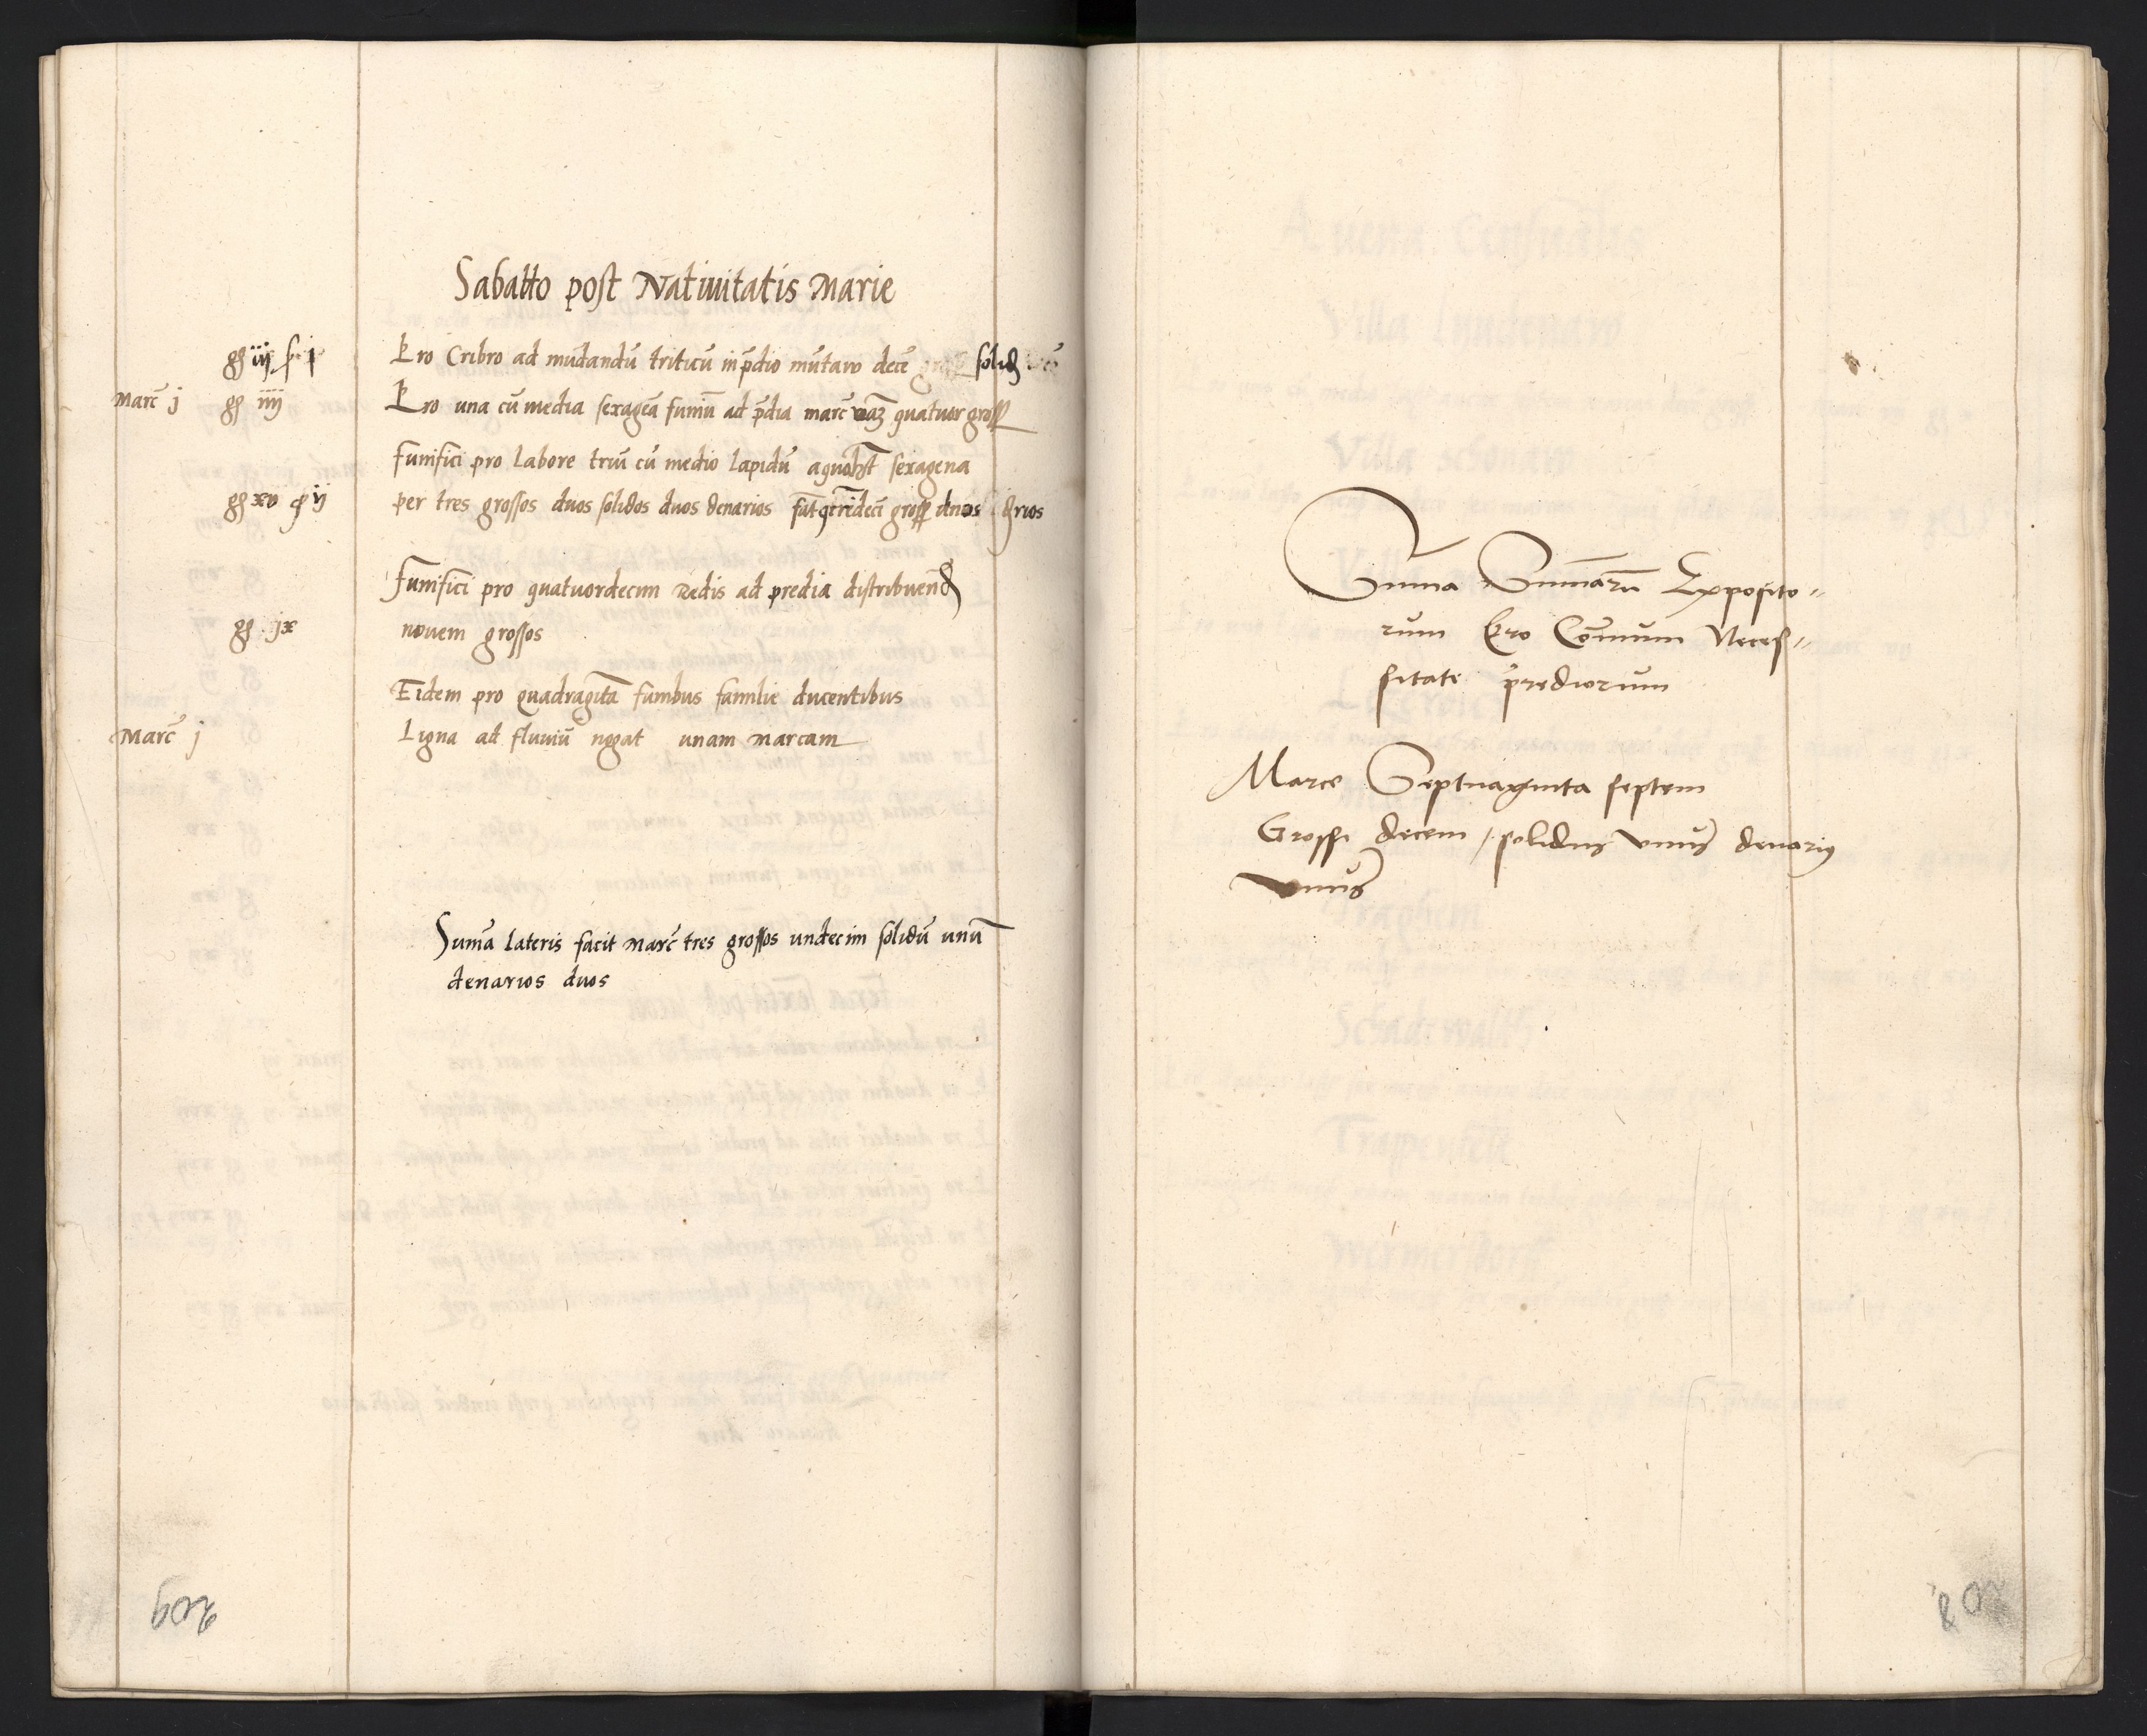 Sabatto post Nativitatis Marie
gg iij s j Pro Cribro ad mūdandū triticū in p̄dio mūtaw decē solid
Marc̄ j gg iiij Pro una cū media sexagēa funiū ad p̄dia marc̄ quatuor gross
funifici pro labore triū cū medio lapidū sexagena
gg xv ij per tres grossos duos solidos duos denarios
funifici pro quatuordecim Redis ad predia distribuend
gg ix novem grossos
Eidem pro quadragīta funibus familie ducentibus
Marc̄ j Ligna ad fluviū nogat unam marcam
Sum̄a lateris facit Marc̄ tres grossos undecim solidū unū
denarios duos
209
Sum̄a Sum̄arū Exposito〃
rum Pro Com̄uni Neces〃
sitate prediorum
Marce Septuaginta septem
Grossi decem / solidus vnus denarius
vnus
208